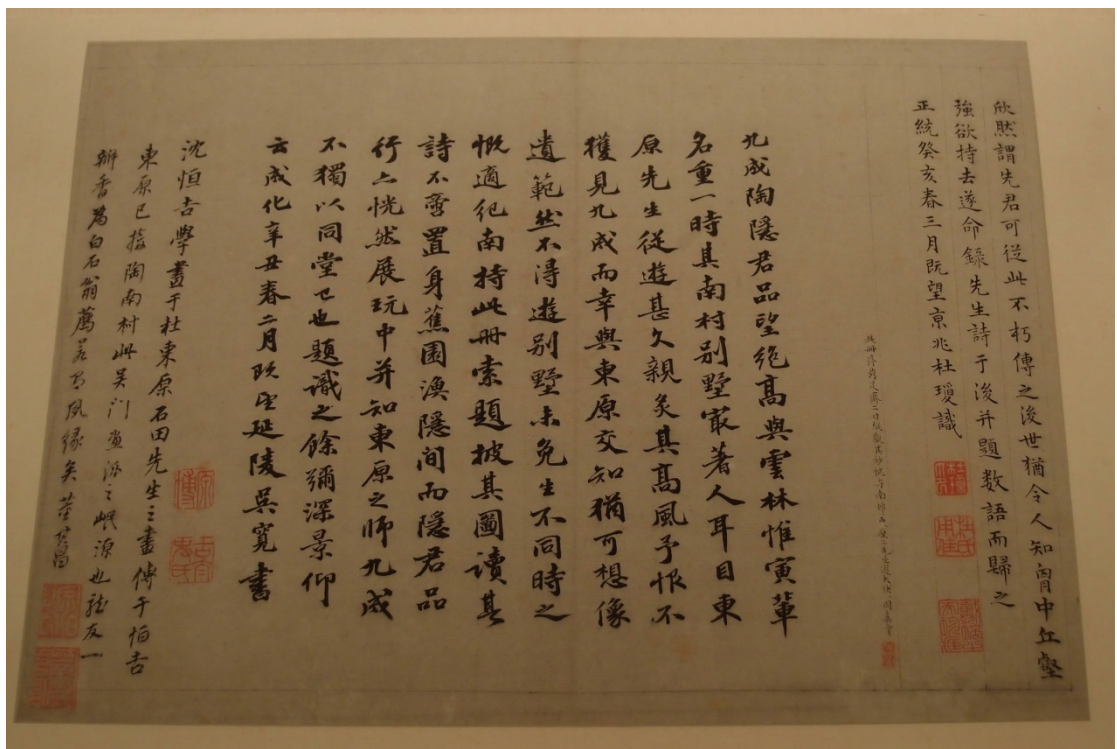 欣然謂先君可從此不朽傳之後世猶令人知胷中丘壑
強欲持去遂命錄先生詩于後并題数語而歸之
正統癸亥春三月既望京兆杜瓊識
九成陶隱君品望絶髙與雲林惟寅輩
名重一時其南村别墅㝡著人耳目東
原先生從遊甚久親炙其髙風予恨不
獲見九成而幸與東原交知猶可想像
遺範然不得遊别墅未免生不同時之
慨適紀南持此冊索題披其圖讀其
詩不啻置身蕉園漁隱間而隱君品
行亦恍然展玩中并知東原之師九成
不獨以同堂已也題識之餘彌深景仰
云成化辛丑春二月既望延陵吳寬書
沈恒吉學畫于杜東原石田先生之畫傳于恒吉
東原已接陶南村此吴门畫派之岷源也龍友一
辦香爲白石翁薦者有夙緣矣董其昌